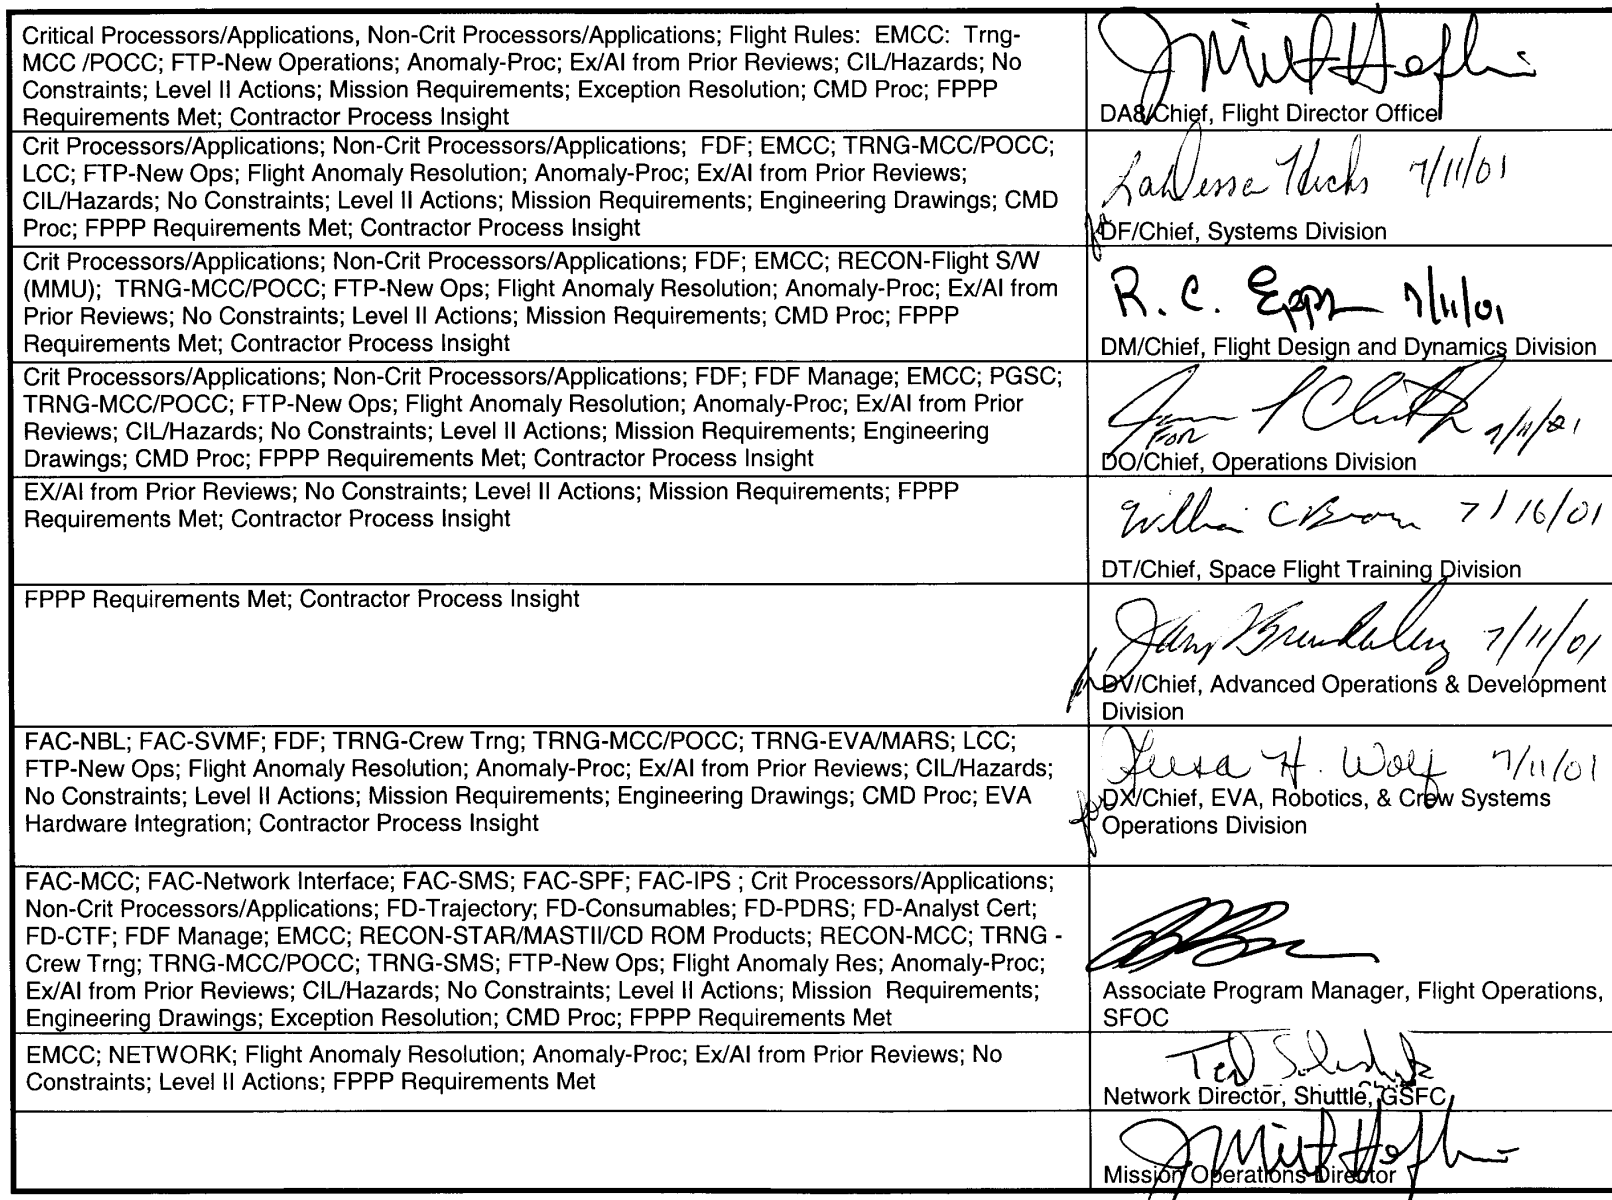 Critical Processors/Applications, Non-Crit Processors/Applications; Flight Rules: EMCC: Trng-
MCC /POCC; FTP-New Operations; Anomaly-Proc; Ex/AI from Prior Reviews; CIL/Hazards; No
Constraints; Level II Actions; Mission Requirements; Exception Resolution; CMD Proc; FPPP
Requirements Met; Contractor Process Insight
J Milt Heflin
DA8/Chief, Flight Director Office
Crit Processors/Applications; Non-Crit Processors/Applications; FDF; EMCC; TRNG-MCC/POCC;
LCC; FTP-New Ops; Flight Anomaly Resolution; Anomaly-Proc; Ex/AI from Prior Reviews;
CIL/Hazards; No Constraints; Level II Actions; Mission Requirements; Engineering Drawings; CMD
Proc; FPPP Requirements Met; Contractor Process Insight
Hicks 7/11/01
for DF/Chief, Systems Division
Crit Processors/Applications; Non-Crit Processors/Applications; FDF; EMCC; RECON-Flight S/W
(MMU); TRNG-MCC/POCC; FTP-New Ops; Flight Anomaly Resolution; Anomaly-Proc; Ex/AI from
Prior Reviews; No Constraints; Level II Actions; Mission Requirements; CMD Proc; FPPP
Requirements Met; Contractor Process Insight
R. C. Epps 7/11/01
DM/Chief, Flight Design and Dynamics Division
Crit Processors/Applications; Non-Crit Processors/Applications; FDF; FDF Manage; EMCC; PGSC;
TRNG-MCC/POCC; FTP-New Ops; Flight Anomaly Resolution; Anomaly-Proc; Ex/AI from Prior
Reviews; CIL/Hazards; No Constraints; Level II Actions; Mission Requirements; Engineering
Drawings; CMD Proc; FPPP Requirements Met; Contractor Process Insight
FOR
DO/Chief, Operations Division
EX/AI from Prior Reviews; No Constraints; Level II Actions; Mission Requirements; FPPP
Requirements Met; Contractor Process Insight
William C Brown 7/16/01
DT/Chief, Space Flight Training Division
FPPP Requirements Met; Contractor Process Insight
7/11/01
for DV/Chief, Advanced Operations & Development
Division
FAC-NBL; FAC-SVMF; FDF; TRNG-Crew Trng; TRNG-MCC/POCC; TRNG-EVA/MARS; LCC;
FTP-New Ops; Flight Anomaly Resolution; Anomaly-Proc; Ex/AI from Prior Reviews; CIL/Hazards;
No Constraints; Level II Actions; Mission Requirements; Engineering Drawings; CMD Proc; EVA
Hardware Integration; Contractor Process Insight
H. Wolf 7/11/01
for DX/Chief, EVA, Robotics, & Crew Systems
Operations Division
FAC-MCC; FAC-Network Interface; FAC-SMS; FAC-SPF; FAC-IPS ; Crit Processors/Applications;
Non-Crit Processors/Applications; FD-Trajectory; FD-Consumables; FD-PDRS; FD-Analyst Cert;
FD-CTF; FDF Manage; EMCC; RECON-STAR/MASTII/CD ROM Products; RECON-MCC; TRNG -
Crew Trng; TRNG-MCC/POCC; TRNG-SMS; FTP-New Ops; Flight Anomaly Res; Anomaly-Proc;
Ex/AI from Prior Reviews; CIL/Hazards; No Constraints; Level II Actions; Mission Requirements;
Engineering Drawings; Exception Resolution; CMD Proc; FPPP Requirements Met
Associate Program Manager, Flight Operations,
SFOC
EMCC; NETWORK; Flight Anomaly Resolution; Anomaly-Proc; Ex/AI from Prior Reviews; No
Constraints; Level II Actions; FPPP Requirements Met
Ted
Network Director, Shuttle, GSFC
J Milt Heflin
Mission Operations Director